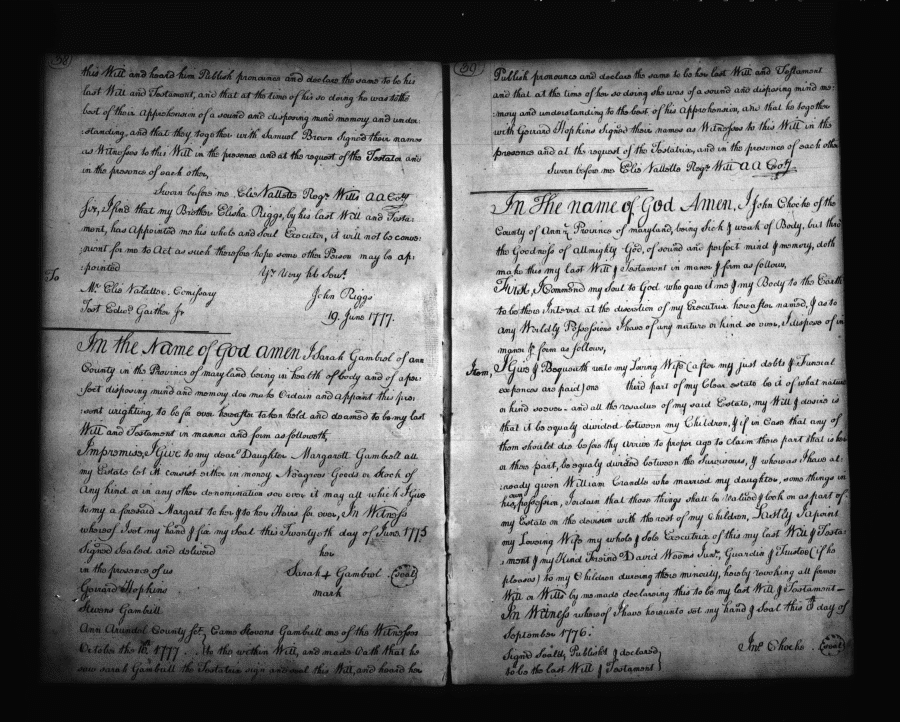 38
this Will and heard him Publish pronounce and declare the same to be his
last Will and Testament, and that at the time of his so doing he was to the
best of their Apprehension of a sound and disposing mind memory and under
:standing, and that they together with Samuel Brown Signed their names
as Witnesses to this Will in the presence and at the request of the Testator and
in the presence of each other,
Sworn before me Elie Vallette Regr. Wills AA Coty
Sir, I find that my Brother Elisha Riggs, by his last Will and Testa:
ment, has Appointed me his whole and Soul Executor, it will not be conve:
:nient for me to Act as such therefore hope some other Person may be ap:
:pointed
Yr Very hb Servt.
To
Mr. Elie Valattee. Comissary
John Riggs
Test Edwd. Gaither Jr
19. June 1777.
In the Name of God amen I Sarah Gambrel of ann
County in the Province of maryland being in health of body and of a per:
:fect disposing mind and memory doe make Ordain and Appoint this pre:
:sent wrighting to be for ever hereafter taken hold and deamed to be my last
Will and Testament in manner and form as followeth,
Impremiss, I Give to my dear Daughter Margarett Gambell all
my Estate let it consist either in money Neagroes Goods or Stock of
Any kind or in any other denomination soe ever it may all which I Give
to my aforesaid Margaret to her & to her Hairs for ever, In Witness
whereof I set my hand & fix my Seal this Twentyth day of June 1775
Signed Sealed and delivered
her
in the presence of us
Sarah + Gambrel (seal)
mark
Gerrard Hopkins
Stevens Gambrill
Ann Arundel County Sct. Came Stevens Gambrill one of the Witnesses
October the 16th 1777. To the within Will, and made Oath that he
saw Sarah Gambrill the Testatrix sign and seal this Will, and heard her
39
Publish pronounce and declare the same to be her last Will and Testament
and that at the time of her so doing she was of a sound and disposing mind me:
:mory and understanding to the best of his Apprehension, and that he together
with Gerrard Hopkins Signed their names as Witnesses to this Will in the
presence and at the request of the Testatrix, and in the presence of each other
Sworn before me Elie Vallette Regr. Will AA Coty
In The name of God Amen, I John Choche of the
County of Annl. Province of maryland, being Sick & weak of Body, but thro
the Goodness of Allmighty God, of sound and perfect mind & memory, doth
make this my last Will & Testament in maner & form as follows,
First, I Commend my Soul to God who gave it me & my Body to the Earth
to be there Interred at the discretion of my Executrix hereafter named, & as to
any Worldly Possessions I have of any nature or kind so ever, I dispose of in
maner & form as follows,
Item, I Give & Bequeath unto my Loving Wife (after my just debts & Funeral
expences are paid) one third part of my Clear estate be it of what nature
or kind soever. and all the residue of my said Estate, my Will & desire is
that it be equaly divided between my Children, & if in Case that any of
them should die before thy arrive to proper age to claim there part that is her
or there part, be equaly divided between the Survivours, & whereas I have al:
:ready given William Crandle who married my daughter, some things in
his own possession, I ordain that those things shall be Valued & look on as part of
my Estate on the devision with the rest of my Children, Lastly I apoint
my Loveing Wife my whole & Sole Executrix of this my last Will & Testa:
:ment & my Kind Freind David Weems Junr., Guardin & Trustee (if he
pleases) to my Children dureing there minority, hereby revoking all former
Will or Wills by me made declareing this to be my last Will & Testament
In Witness whereof I have hereunto set my hand & Seal this day of
September 1776.
Signd Seald, Publisht & declared
to be the last Will & Testament
Jno. Choche (seal)